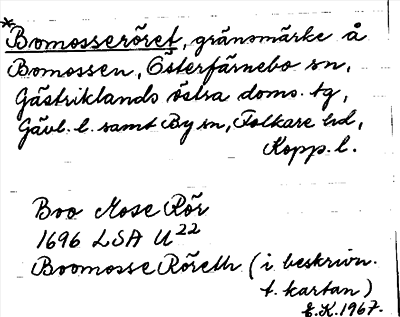 *Bomosseröret, gränsmärke å
Bomossen, Österfärnebo sn,
Gästriklands östra doms. tg,
Gävl. l. samt By sn, Folkare hd,
Kopp. l.
Boo Mose Rör
1696 LSA U22
Boomosse Röreth (i beskrivn.
t. kartan)
E.K. 1967.